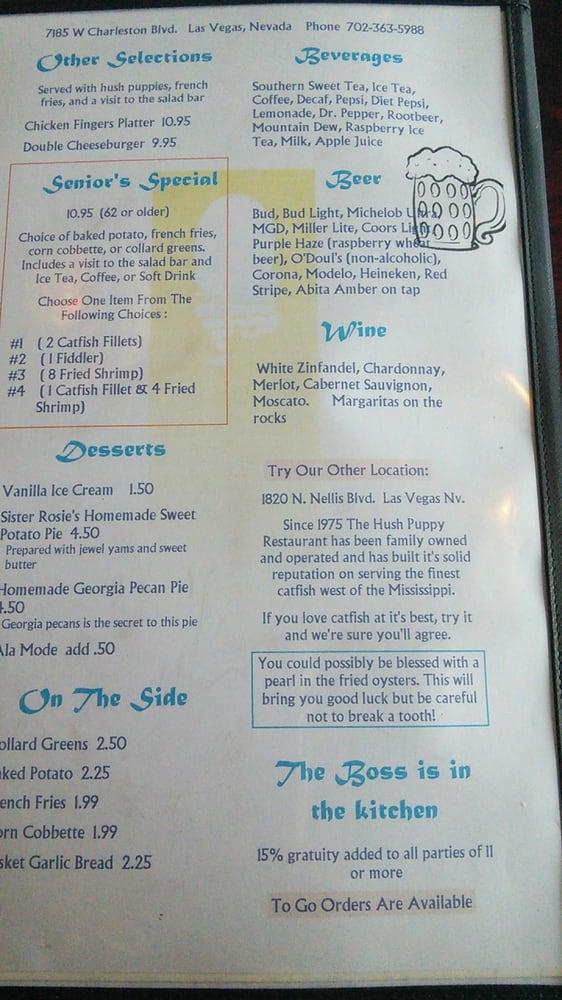 7185 W Charleston Blvd. Las Vegas, Nevada Phone 702-363-5988
Other Selections
Served with hush puppies, french
fries, and a visit to the salad bar
Chicken Fingers Platter 10.95
Double Cheeseburger 9.95
Senior's Special
10.95 (62 or older)
Choice of baked potato, french fries,
corn cobbette, or collard greens.
Includes a visit to the salad bar and
Ice Tea, Coffee, or Soft Drink
Choose One Item From The
Following Choices :
#1 ( 2 Catfish Fillets)
#2 ( 1 Fiddler)
#3 ( 8 Fried Shrimp)
#4 ( 1 Catfish Fillet & 4 Fried
Shrimp)
Desserts
Vanilla Ice Cream 1.50
Sister Rosie's Homemade Sweet
Potato Pie 4.50
Prepared with jewel yams and sweet
butter
Homemade Georgia Pecan Pie
4.50
Georgia pecans is the secret to this pie
Ala Mode add .50
On The Side
ollard Greens 2.50
ked Potato 2.25
ench Fries 1.99
orn Cobbette 1.99
sket Garlic Bread 2.25
Beverages
Southern Sweet Tea, Ice Tea,
Coffee, Decaf, Pepsi, Diet Pepsi,
Lemonade, Dr. Pepper, Rootbeer,
Mountain Dew, Raspberry Ice
Tea, Milk, Apple Juice
Beer
Bud, Bud Light, Michelob Ultra,
MGD, Miller Lite, Coors Light,
Purple Haze (raspberry wheat
beer), O'Doul's (non-alcoholic),
Corona, Modelo, Heineken, Red
Stripe, Abita Amber on tap
Wine
White Zinfandel, Chardonnay,
Merlot, Cabernet Sauvignon,
Moscato. Margaritas on the
rocks
Try Our Other Location:
1820 N. Nellis Blvd. Las Vegas Nv.
Since 1975 The Hush Puppy
Restaurant has been family owned
and operated and has built it's solid
reputation on serving the finest
catfish west of the Mississippi.
If you love catfish at it's best, try it
and we're sure you'll agree.
You could possibly be blessed with a
pearl in the fried oysters. This will
bring you good luck but be careful
not to break a tooth!
The Boss is in
the kitchen
15% gratuity added to all parties of 11
or more
To Go Orders Are Available